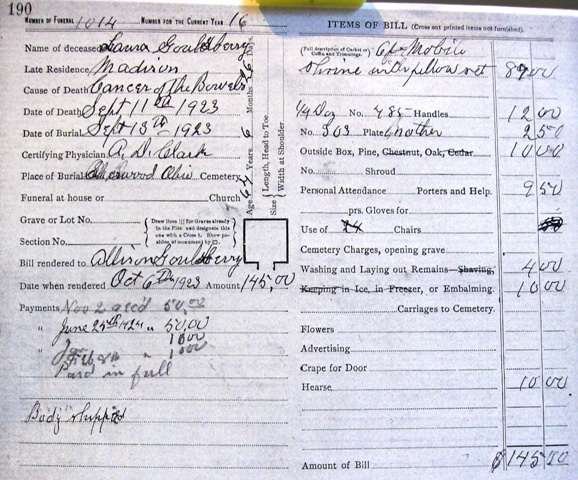 190
NUMBER OF FUNERAL 1014 NUMBER FOR THE CURRENT YEAR 16
Name of deceased Laura Gouldsberry
Late Residence Madison
Cause of Death Cancer of the Bowels
Date of Death Sept 11th 1923
Date of Burial Sept 13th 1923
Certifying Physician A. D. Clark
Place of Burial Sherwood Ohio Cemetery
Funeral at house or Church
Grave or Lot No.
Section No.
(Draw lines for Graves already in the Plat and designate this one with a Cross †. Show position of monument by □.)
Age 67 Years 6 Months 26 Days
Size { Length, Head to Toe
Width at Shoulder
Bill rendered to Allison Gouldsberry
Date when rendered Oct 6th 1923 Amount 145,00
Payments Nov 2 rec'd 50,00
" June 25th 1924 " 50.00
" 
" "
Paid in full
Body shipped
ITEMS OF BILL (Cross out printed items not furnished).
(Full description of Casket or Coffin and Trimmings.)
Shrine with pillow set 87 00
No. 485 Handles 12 00
No. 303 Plate Mother 2 50
Outside Box, Pine, Chestnut, Oak, Cedar 10 00
No. Shroud
Personal Attendance Porters and Help. 9 50
prs. Gloves for
Use of 24 Chairs
Cemetery Charges, opening grave
Washing and Laying out Remains—Shaving, 4 00
Keeping in Ice, in Freezer, or Embalming. 10 00
Carriages to Cemetery.
Flowers
Advertising
Crape for Door
Hearse 10 00
Amount of Bill $145